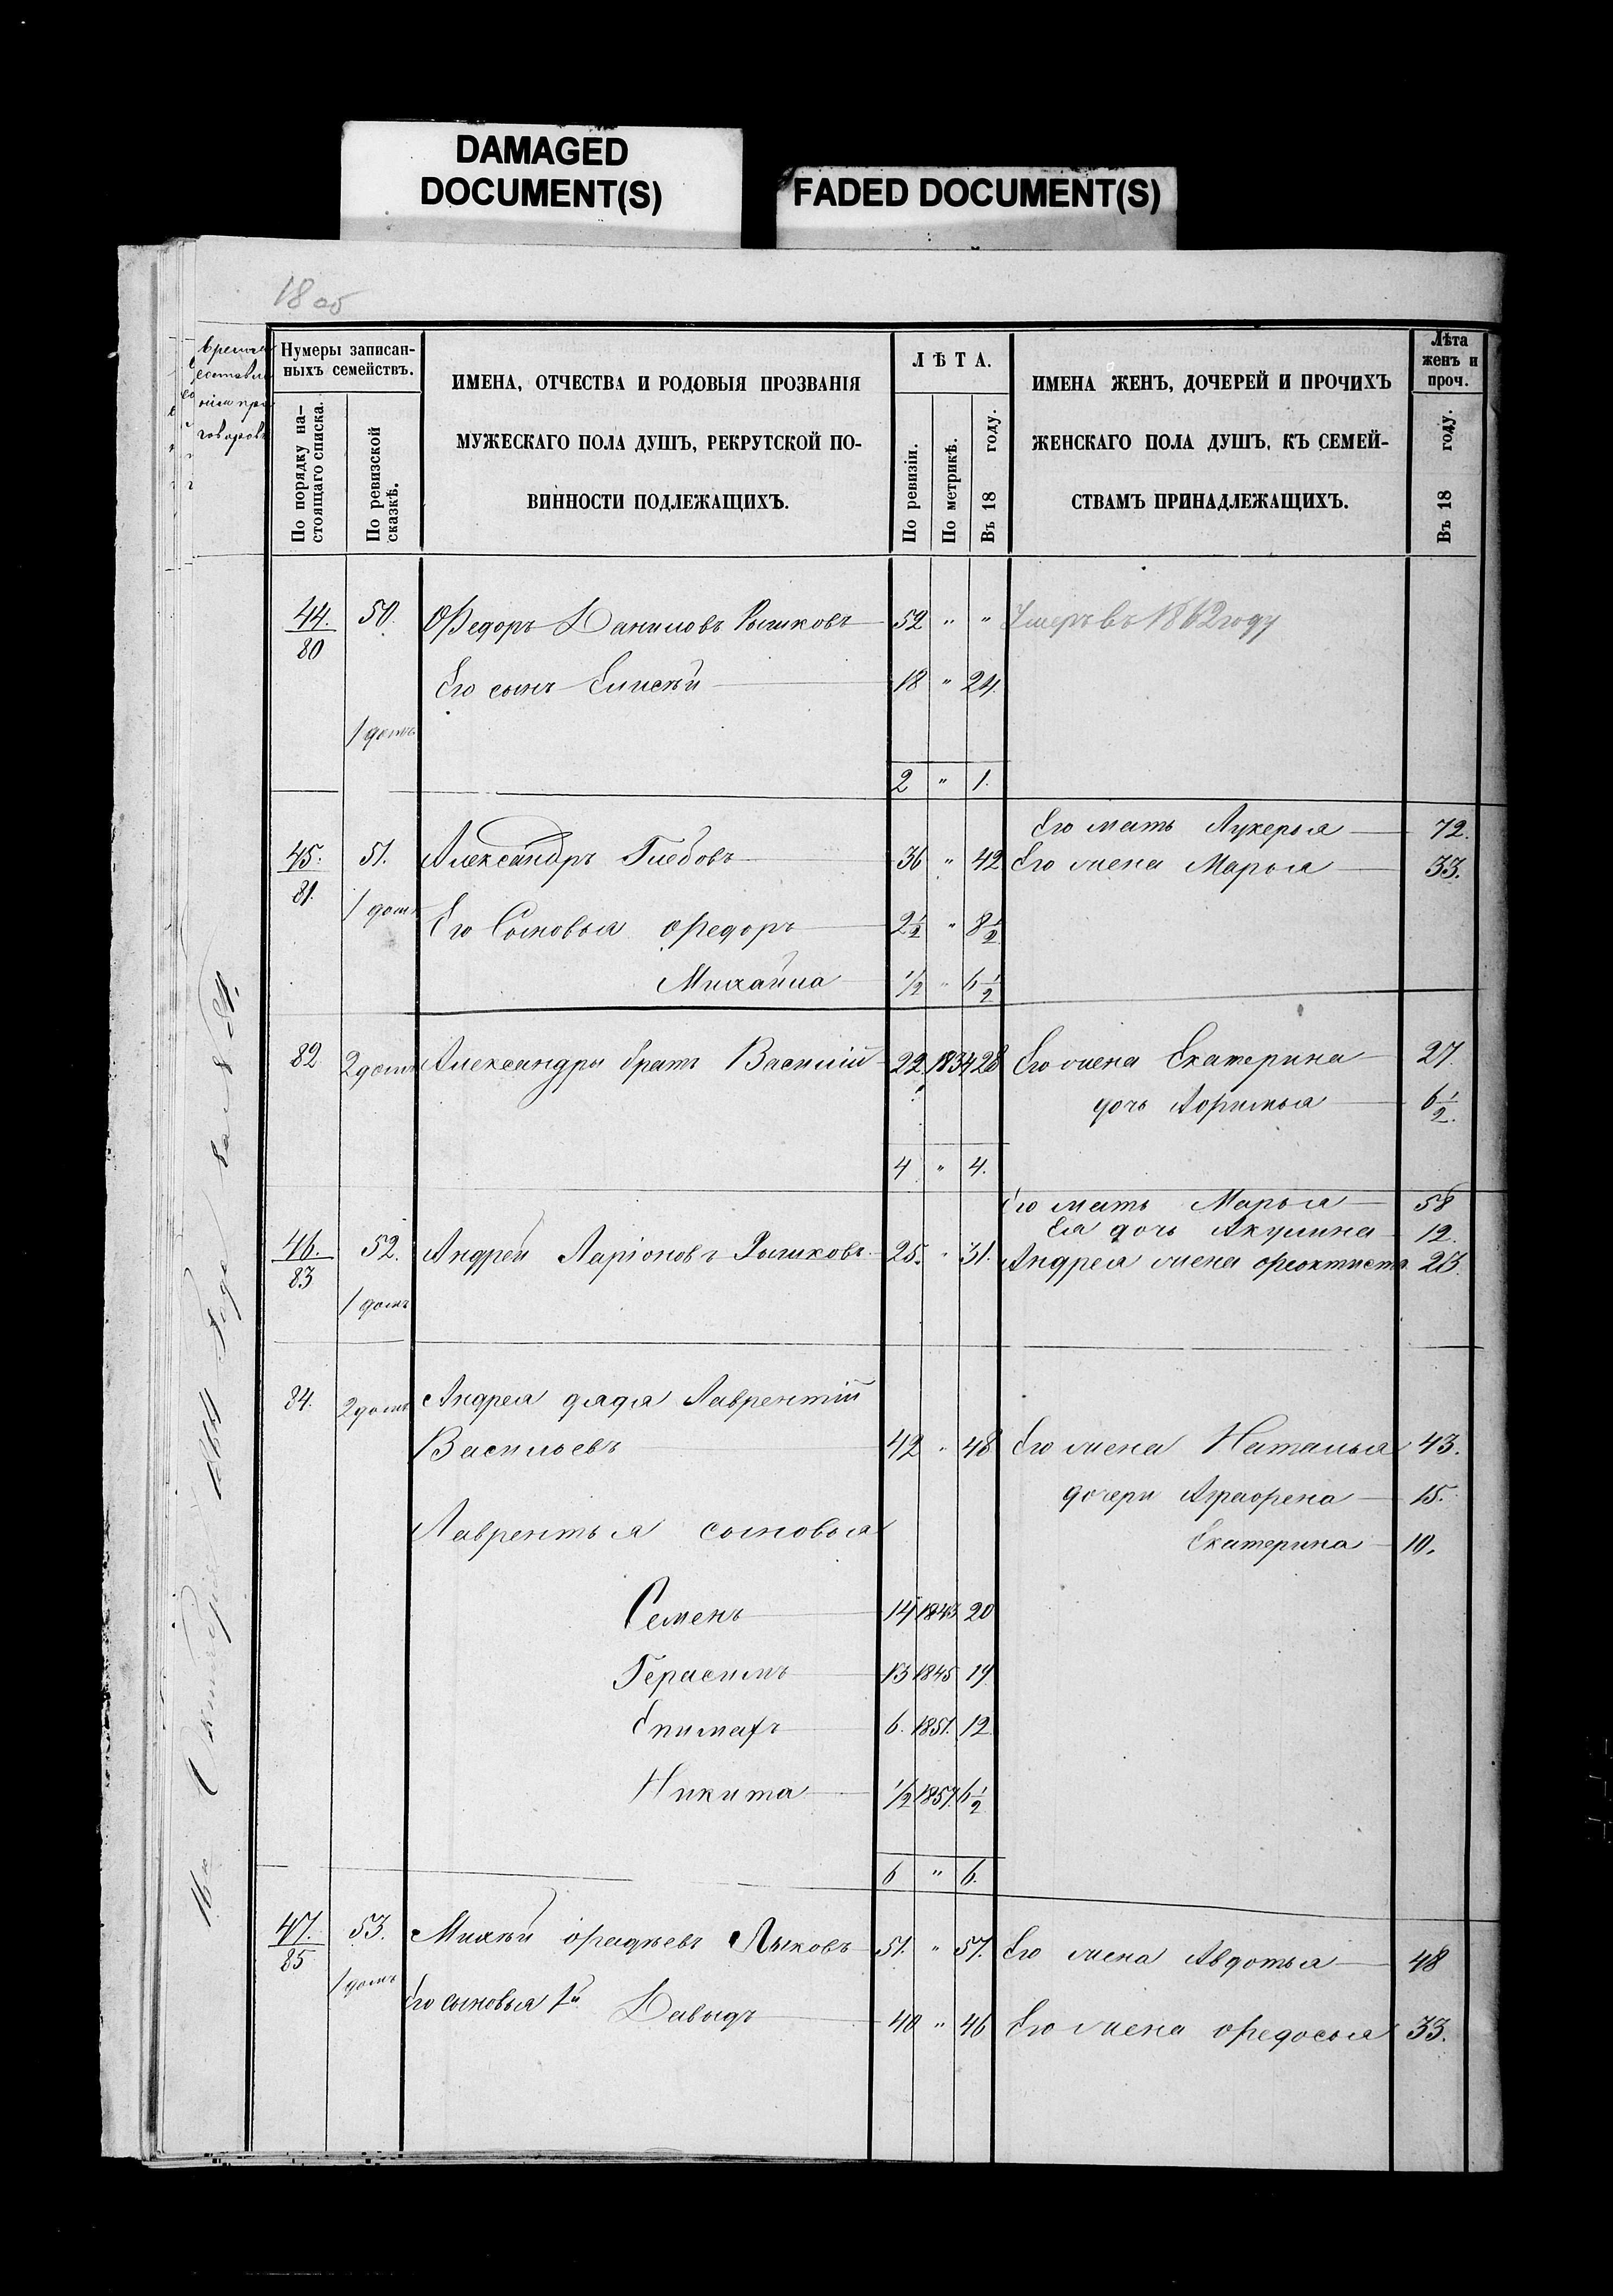 DAMAGED
DOCUMENT(S)
FADED DOCUMENT(S)
18 об
Нумеры записан-
ныхъ семействъ.
По порядку на-
стоящаго списка.
По ревизской
сказкѣ.
ИМЕНА, ОТЧЕСТВА И РОДОВЫЯ ПРОЗВАНІЯ
МУЖЕСКАГО ПОЛА ДУШЪ, РЕКРУТСКОЙ ПО-
ВИННОСТИ ПОДЛЕЖАЩИХЪ.
ЛѢТА.
По ревизіи.
По метрикѣ.
Въ 18 году.
ИМЕНА ЖЕНЪ, ДОЧЕРЕЙ И ПРОЧИХЪ
ЖЕНСКАГО ПОЛА ДУШЪ, КЪ СЕМЕЙ-
СТВАМЪ ПРИНАДЛЕЖАЩИХЪ.
Лѣта
женъ и
проч.
Въ 18 году.
44. 50. Ѳедоръ Даниловъ Рышковъ 52 " " Умеръ въ 1862 году
80
Его сынъ Елисѣй 18 " 24.
1 домъ
2 " 1.
Его мать Лукерья 72.
45. 51. Александръ Глебовъ 36 " 42 Его жена Марья 33.
81.
1 домъ Его Сыновья Федоръ 2 1/2 " 8 1/2
Михайла 1/2 " 6 1/2
82 2 домъ Александры братъ Василій 22. 1834 28 Его жена Екатерина 27.
дочь Афимья 6 1/2.
4 " 4.
Его мать Марья 58
Ея дочь Акулина 12.
46. 52. Андрей Ларіоновъ Рышковъ 25. " 31. Андрея жена Феоктиста 23.
83
1 домъ
84. 2 домъ Андрея дядя Лаврентій
Васильевъ 42 " 48 Его жена Наталья 43.
дочери Аграфена 15.
Лаврентья сыновья
Екатерина 10.
Семенъ 14 1843 20
Герасимъ 13 1845 19
Епимахъ 6. 1851. 12
Никита 1/2 1857. 6 1/2
6 " 6.
47. 53. Михѣй Фадѣевъ Лыковъ 51. " 57. Его жена Авдотья 48
85
1 домъ Его сыновья 1й Давыдъ 40 " 46 Его жена Федосья 33.